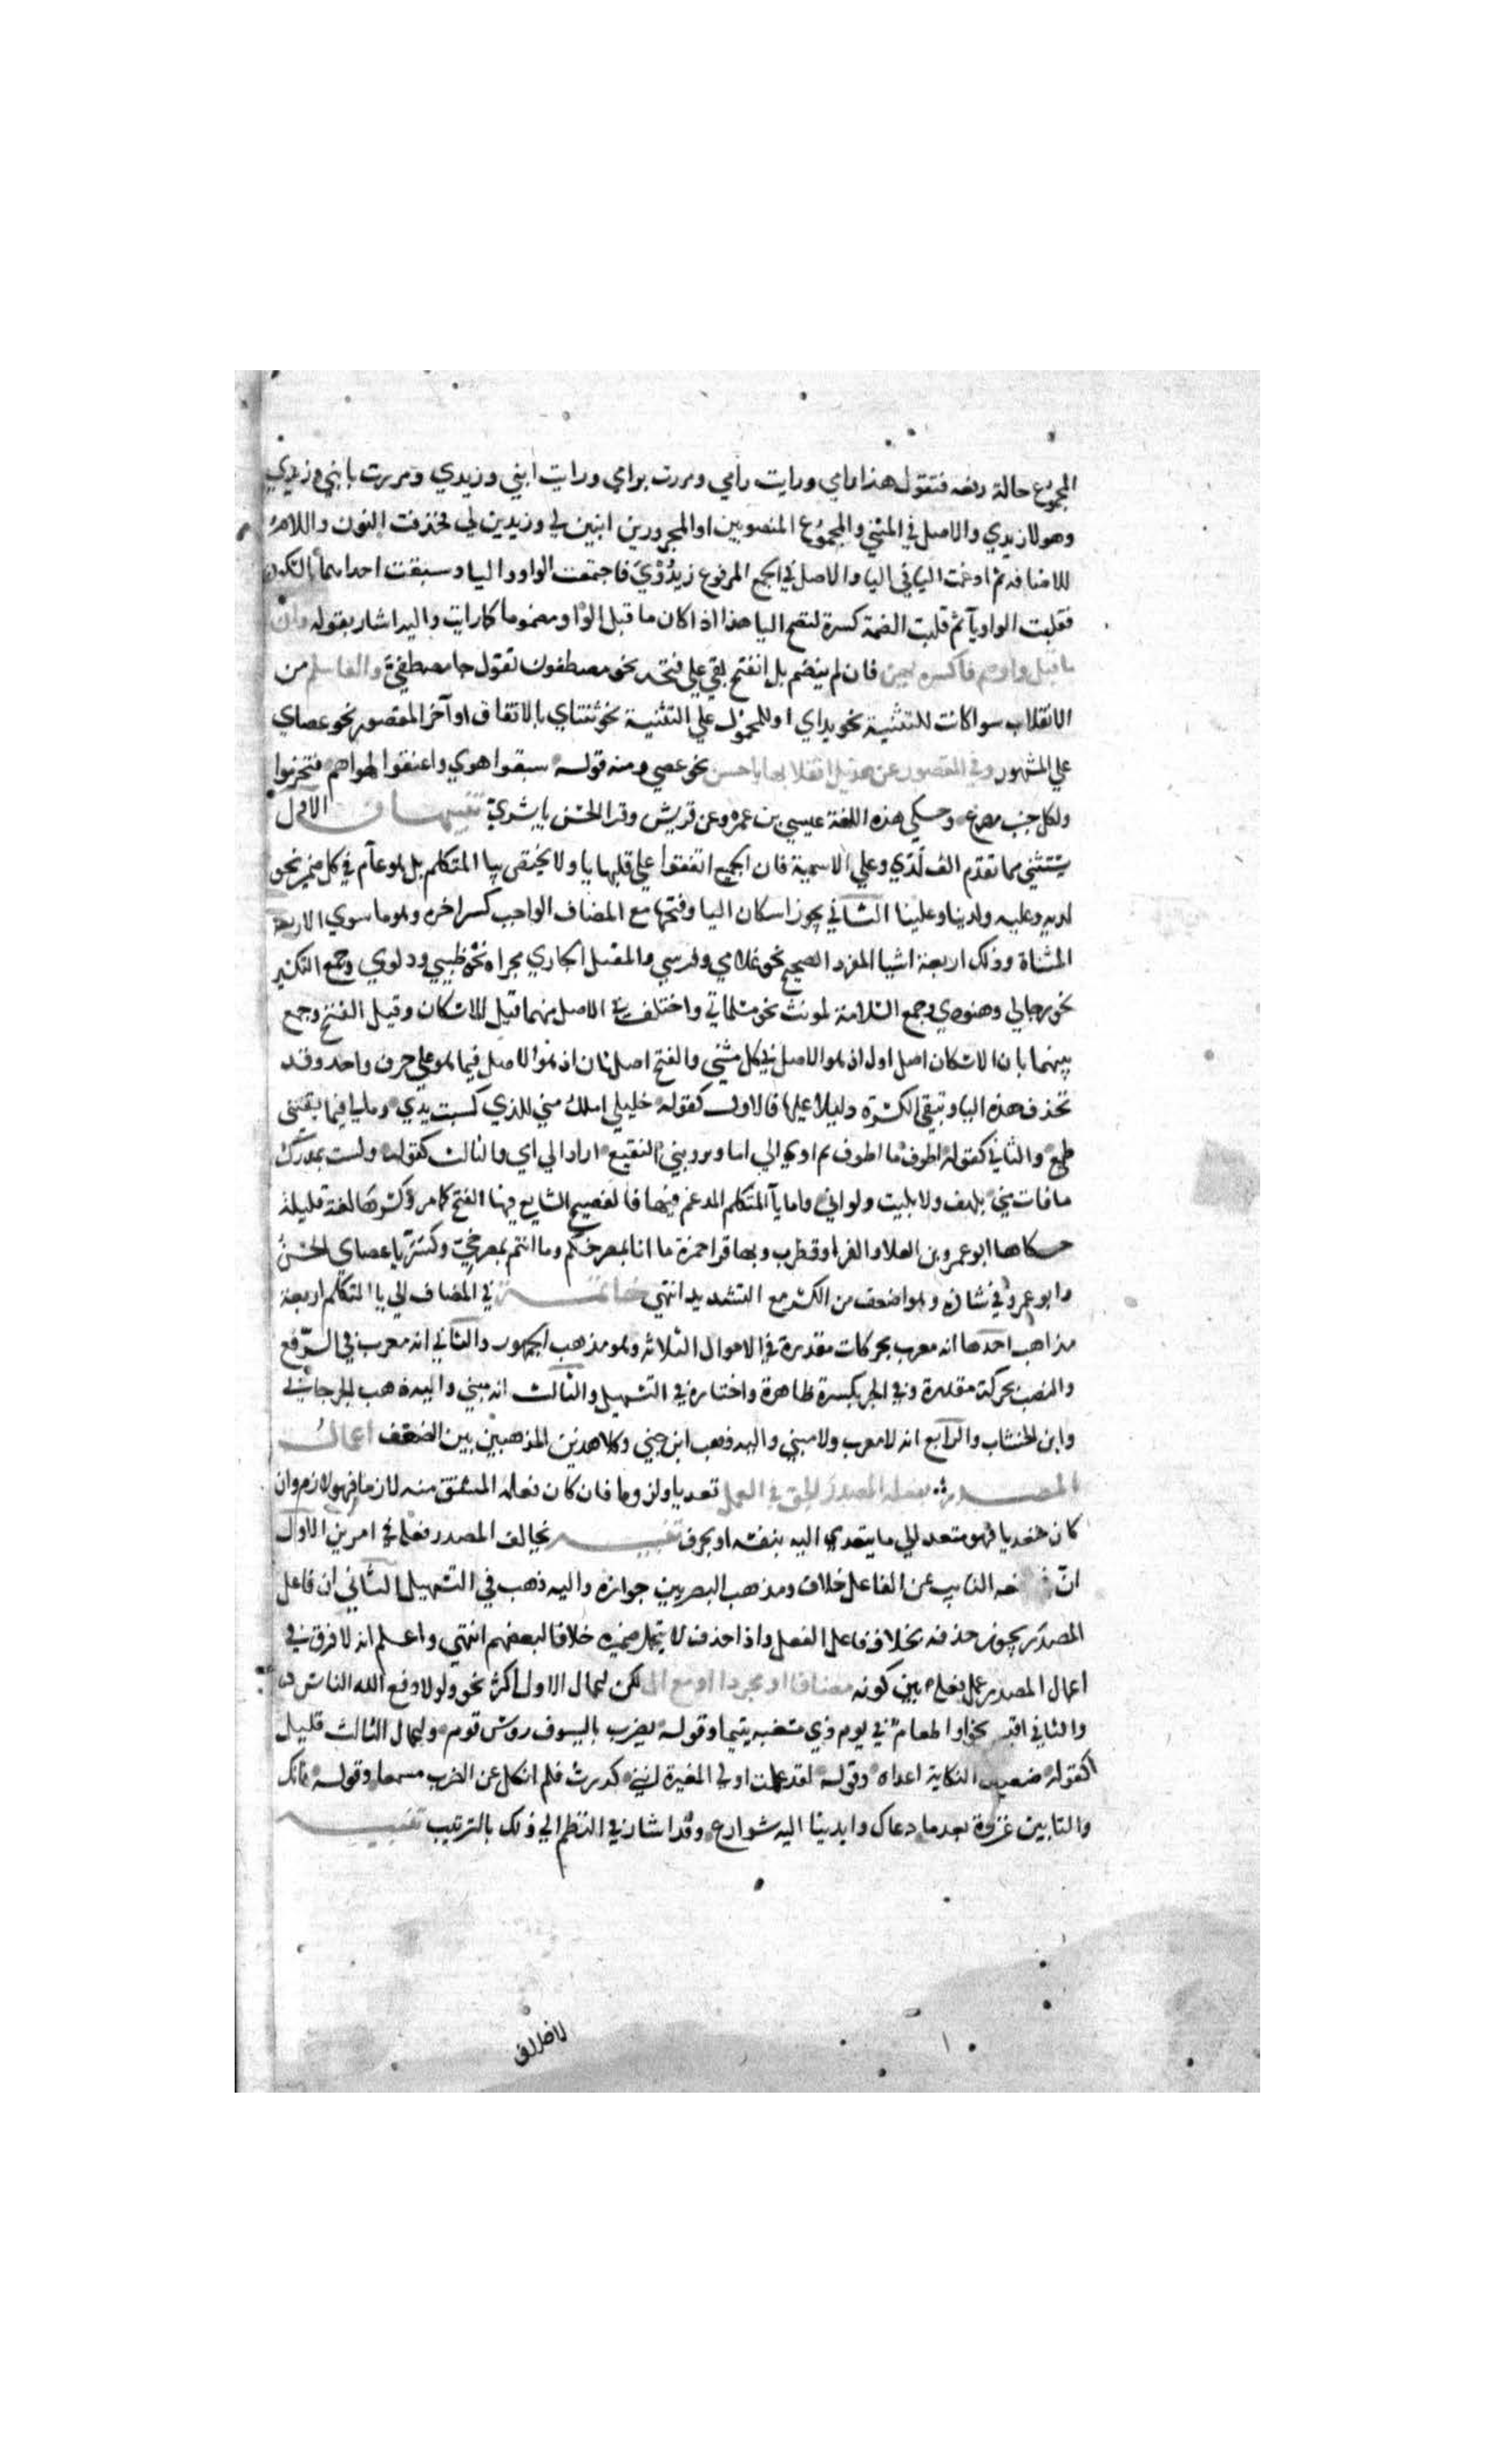 المجموع حالة رفعه فتقول هذا رامي ورايت رامي ومررت برامي ورايت ابني وزيدي ومررت بابني وزيدي
وهولا زيدي والاصل في المثني والمجموع المنصوبين او المجرورين ابنين لي وزيدين لي فحذفت النون واللام
للاضافة ثم ادغمت اليا في اليا والاصل في الجمع المرفوع زيدُوْيَ فاجتمعت الواو واليا وسبقت احداهما بالسكون
فقلبت الواو يآ ثم قلبت الضمة كسرة لتصح اليا هذا اذا كان ما قبل الواو مضموما كما رايت واليه اشار بقوله وان
ما قبل واو ضم فاكسره يهن فان لم ينضم بل انفتح بقي علي فتحه نحو مصطفون تقول جا مصطفيَّ والفا سلم من
الانقلاب سوا كانت للتثنية نحو يداي او للمحمول علي التثنية نحو ثنتاي بالاتفاق او آخر المقصور نحو عصاي
علي المشهور وفي المقصور عن هذيل انقلابها يا حسن نحو عصي ومنه قوله سبقوا هوي واعنقوا لهواهم فتخرموا
ولكل جنب مصرع وحكي هذه اللغة عيسي بن عمر وعن قريش وقرا الحسن يا بشريّ تنبيهان الاول
يستثني مما تقدم الف لدي وعلي الاسمية فان الجميع اتفقوا علي قلبها يا ولا يختص بيا المتكلم بل هو عآم في كل ضمير نحو
لديه وعليه ولدينا وعلينا الثاني يجوز اسكان اليا وفتحها مع المضاف الواجب كسر اخره وهو ما سوي الاربعة
المستثناة وذلك اربعة اشيا المفرد الصحيح نحو غلامي وفرسي والمعتل الجاري مجراه نحو ظبيي ودلوي وجمع التكسير
نحو رجالي وهنودي وجمع السلامة لمونث نحو مسلماتي واختلف في الاصل منهما قيل الاسكان وقيل الفتح وجمع
بينهما بان الاسكان اصل اول اذ هو الاصل في كل مبني والفتح اصل ثان اذ هو الاصل فيما هو علي حرف واحد وقد
تحذف هذه اليا وتبقي الكسرة دليلا عليها فالاول كقوله خليلي املك مني للذي كسبت يدي ومالي فيما يقتني
طمع والثاني كقوله اطوف ما اطوف ثم اوي الي اما ويرويني النقيع اراد الي امي والثالث كقوله ولست بمدرك
ما فات مني بلهف ولا بليت ولو اني واما يآ المتكلم المدغم فيها فالفصيح الشايع فيها الفتح كما مر وكسرها لغة قليلة
حكاها ابو عمرو بن العلا والفرا وقطرب وبها قرا حمزة ما انا بمصرخكم وما انتم بمصرخيّ وكسر يا عصاي الحسن
وابو عمرو في شاذه وهو اضعف من الكسر مع التشديد انتهي خاتمة في المضاف الي يا المتكلم اربعة
مذاهب احدها انه معرب بحركات مقدرة في الاحوال الثلاثة وهو مذهب الجمهور والثاني انه معرب في الرفع
والنصب بحركة مقدرة وفي الجر بكسرة ظاهرة واختاره في التسهيل والثالث انه مبني واليه ذهب الجرجاني
وابن الخشاب والرابع انه لا معرب ولا مبني واليه ذهب ابن جني وكلا هذين المذهبين بين الضعف اعمال
المصدر بفعله المصدر الحق في العمل تعديا ولزوما فان كان فعله المشتق منه لازما فهو لازم وان
كان متعديا فهو متعد الي ما يتعدي اليه بنفسه او بحرف تنبيه يخالف المصدر فعله في امرين الاول
انّ في رفعه النايب عن الفاعل خلاف ومذهب البصريين جوازه واليه ذهب في التسهيل الثاني ان فاعل
المصدر يجوز حذفه بخلاف فاعل الفعل واذا حذف لا يتحمل ضميره خلافا لبعضهم انتهي واعلم انه لا فرق في
اعمال المصدر عمل فعله بين كونه مضافا او مجردا او مع ال لكن اعمال الاول اكثر نحو ولولا دفع الله الناس
والثاني اقيس نحو او اطعام في يوم ذي مسغبه يتيما وقوله بضرب بالسيوف روس قوم واعمال الثالث قليل
كقوله ضعيف النكاية اعداه وقوله لقد علمت اولي المغيرة انني كررت فلم انكل عن الضرب مسمعا وقوله فانك
والتابين عروة بعد ما دعاك وايدينا اليه شوارع وقد اشار في النظم الي ذلك بالترتيب تنبيه